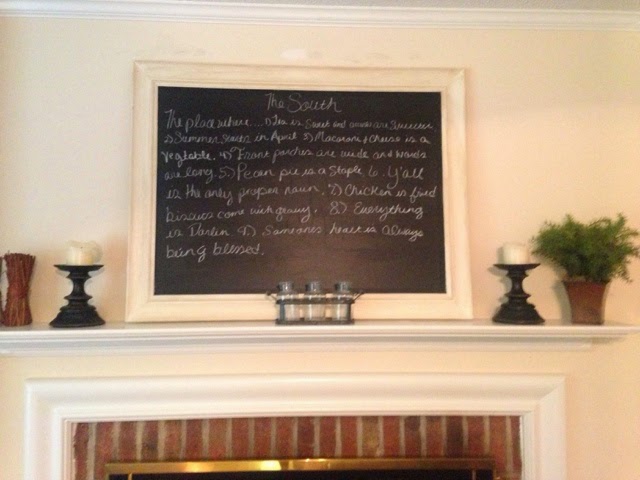 The South
The place where... 1) Tea is sweet and accents are sweeter.
2) Summer starts in April 3) Macaroni & Cheese is a
vegetable. 4) Front porches are wide and words
are long. 5.) Pecan pie is a staple 6. Y'all
is the only proper noun. 7) Chicken is fried
biscuits come with gravy. 8.) Everything
is Darlin 9.) Someones heart is always
being blessed.